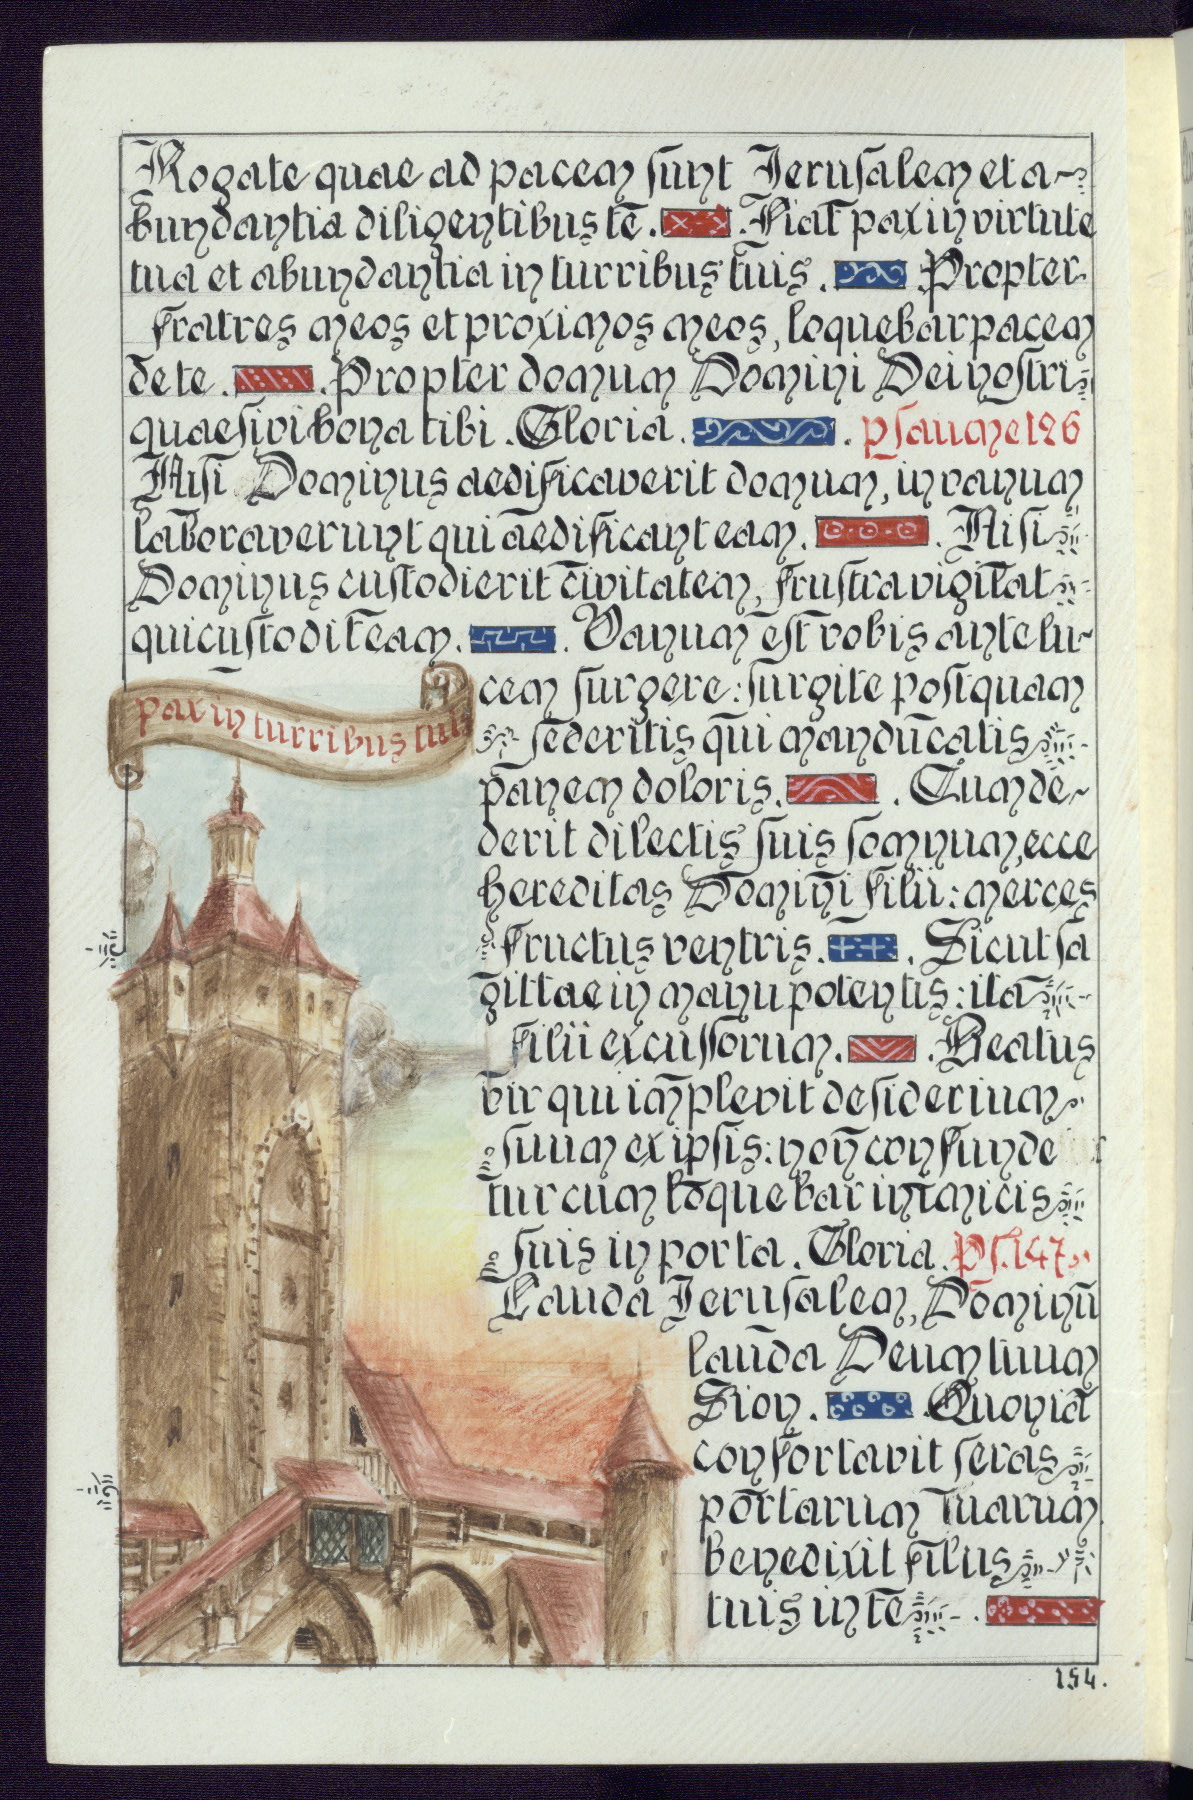 Rogate quae ad pacem sunt Jerusalem et a~
bundantia diligentibus te. Fiat pax in virtute
tua et abundantia in turribus tuis. Propter
fratres meos et proximos meos, loquebar pacem
de te. Propter domum Domini Dei nostri
quaesivi bona tibi. Gloria. psaume 126
Nisi Dominus aedificaverit domum, in vanum
laboraverunt qui aedificant eam. Nisi
Dominus custodierit civitatem, frustra vigilat
qui custodit eam. Vanum est vobis ante lu~
pax in turribus tuis
cem surgere: surgite postquam
sederitis qui manducatis
panem doloris. Cum de~
derit dilectis suis somnum, ecce
hereditas Domini filii: merces
fructus ventris. Sicut sa
gittae in manu potentis: ita
filii excussorum. Beatus
vir qui implevit desiderium
suum ex ipsis: non confunde
tur cum loquebar inimicis
suis in porta. Gloria. Ps. 147.
Lauda Jerusalem, Dominū
lauda Deum tuum
Sion. Quoniā
confortavit seras
portarum tuarum
benedixit filus
tuis in te.
154.